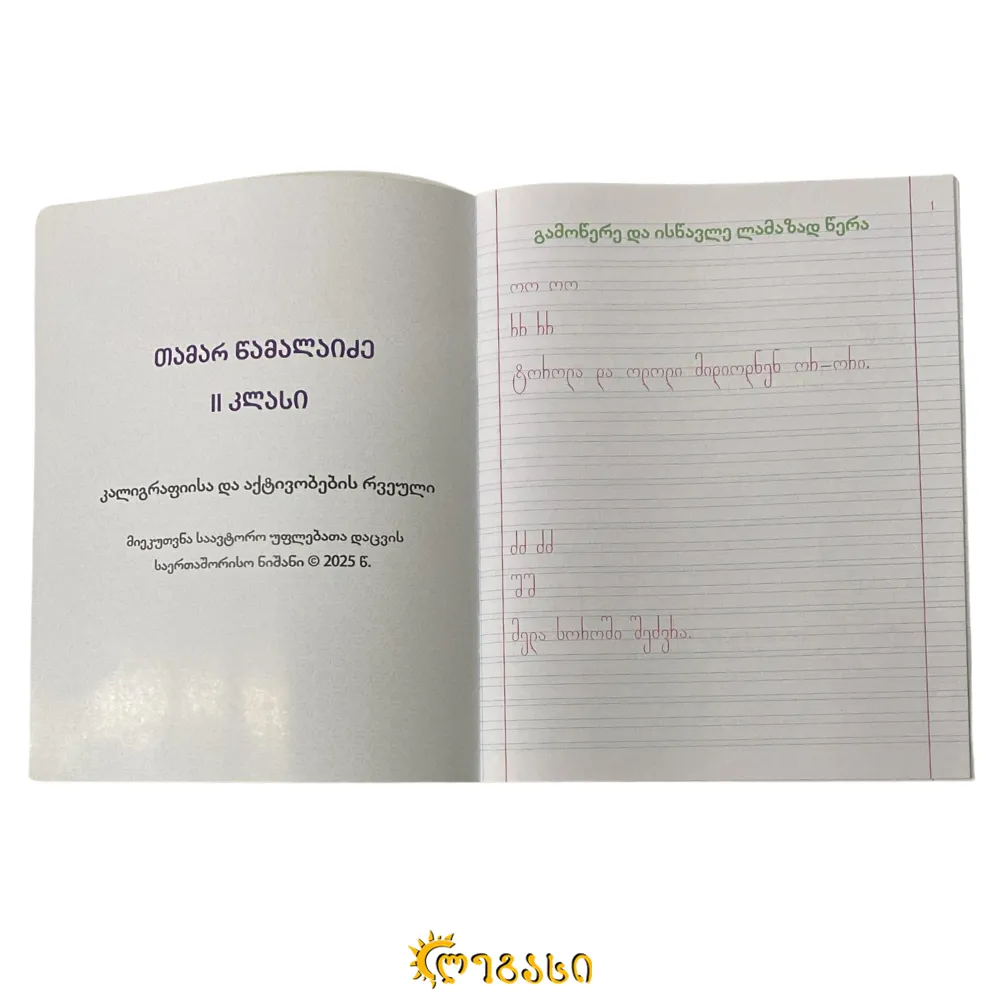 თამარ წამალაიძე
II კლასი
კალიგრაფიისა და აქტივობების რვეული
მიეკუთვნა საავტორო უფლებათა დაცვის
საერთაშორისო ნიშანი © 2025 წ.
1
გამოწერე და ისწავლე ლამაზად წერა
ოო ოო
რრ რრ
ტოროლა და ოლოლი მიდიოდნენ ორ-ორი.
ძძ ძძ
შშ
მელა სოროში შეძვრა.
ლეგასი